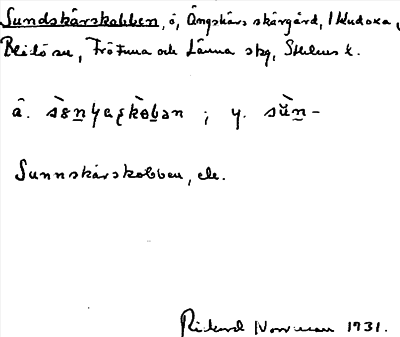 Sundskärskobben, ö, Ängskärs skärgård, 1 Kudoxa,
Blidö sn, Frötuna och Länna skg, Sthlms l.
ä. ; y. sŭn-
Sunnskärskobben, ele.
Rickard Norrman 1931.